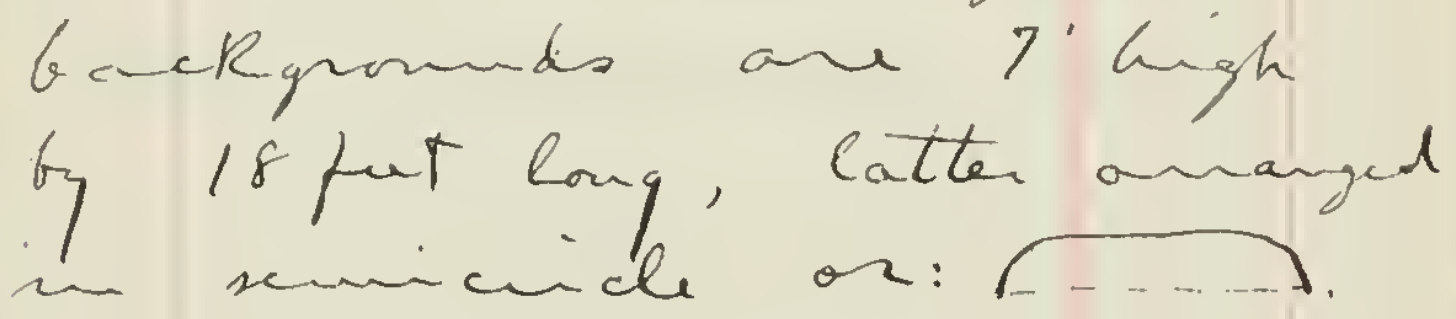 backgrounds are 7' high
by 18 feet long, latter arranged
in semicircle or: